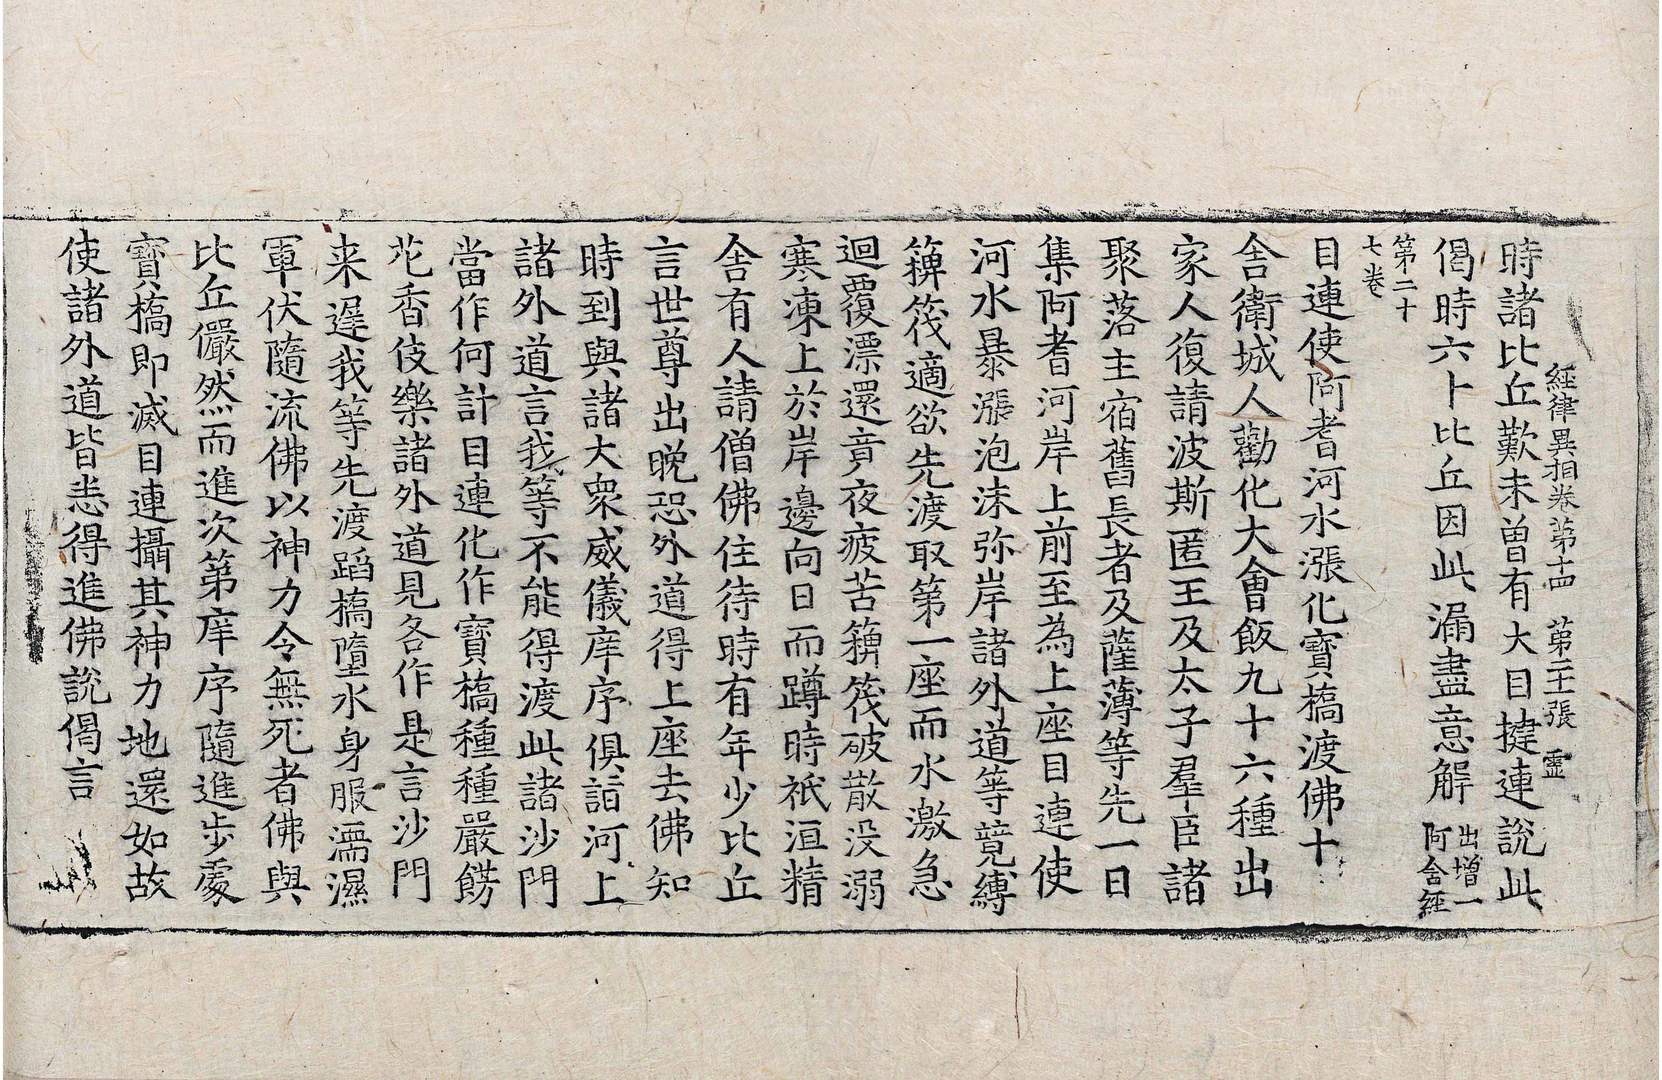 經律異相卷第十四 第二十張 靈
時諸比丘歎未曾有大目揵連說此
偈時六十比丘因此漏盡意解出增一阿含經
第二十七卷
目連使阿耆河水漲化寶橋渡佛十
舍衛城人勸化大會飯九十六種出
家人復請波斯匿王及太子羣臣諸
聚落主宿舊長者及薩薄等先一日
集阿耆河岸上前至為上座目連使
河水暴漲泡沫弥岸諸外道等競縛
簰筏適欲先渡取第一座而水激急
迴覆漂還竟夜疲苦簰筏破散没溺
寒凍上於岸邊向日而蹲時祇洹精
舍有人請僧佛住待時有年少比丘
言世尊出晚恐外道得上座去佛知
時到與諸大衆威儀庠序俱詣河上
諸外道言我等不能得渡此諸沙門
當作何計目連化作寶橋種種嚴餝
花香伎樂諸外道見各作是言沙門
来遲我等先渡蹈橋墮水身服濡濕
軍伏隨流佛以神力令無死者佛與
比丘儼然而進次第庠序隨進步處
寶橋即滅目連攝其神力地還如故
使諸外道皆悉得進佛說偈言